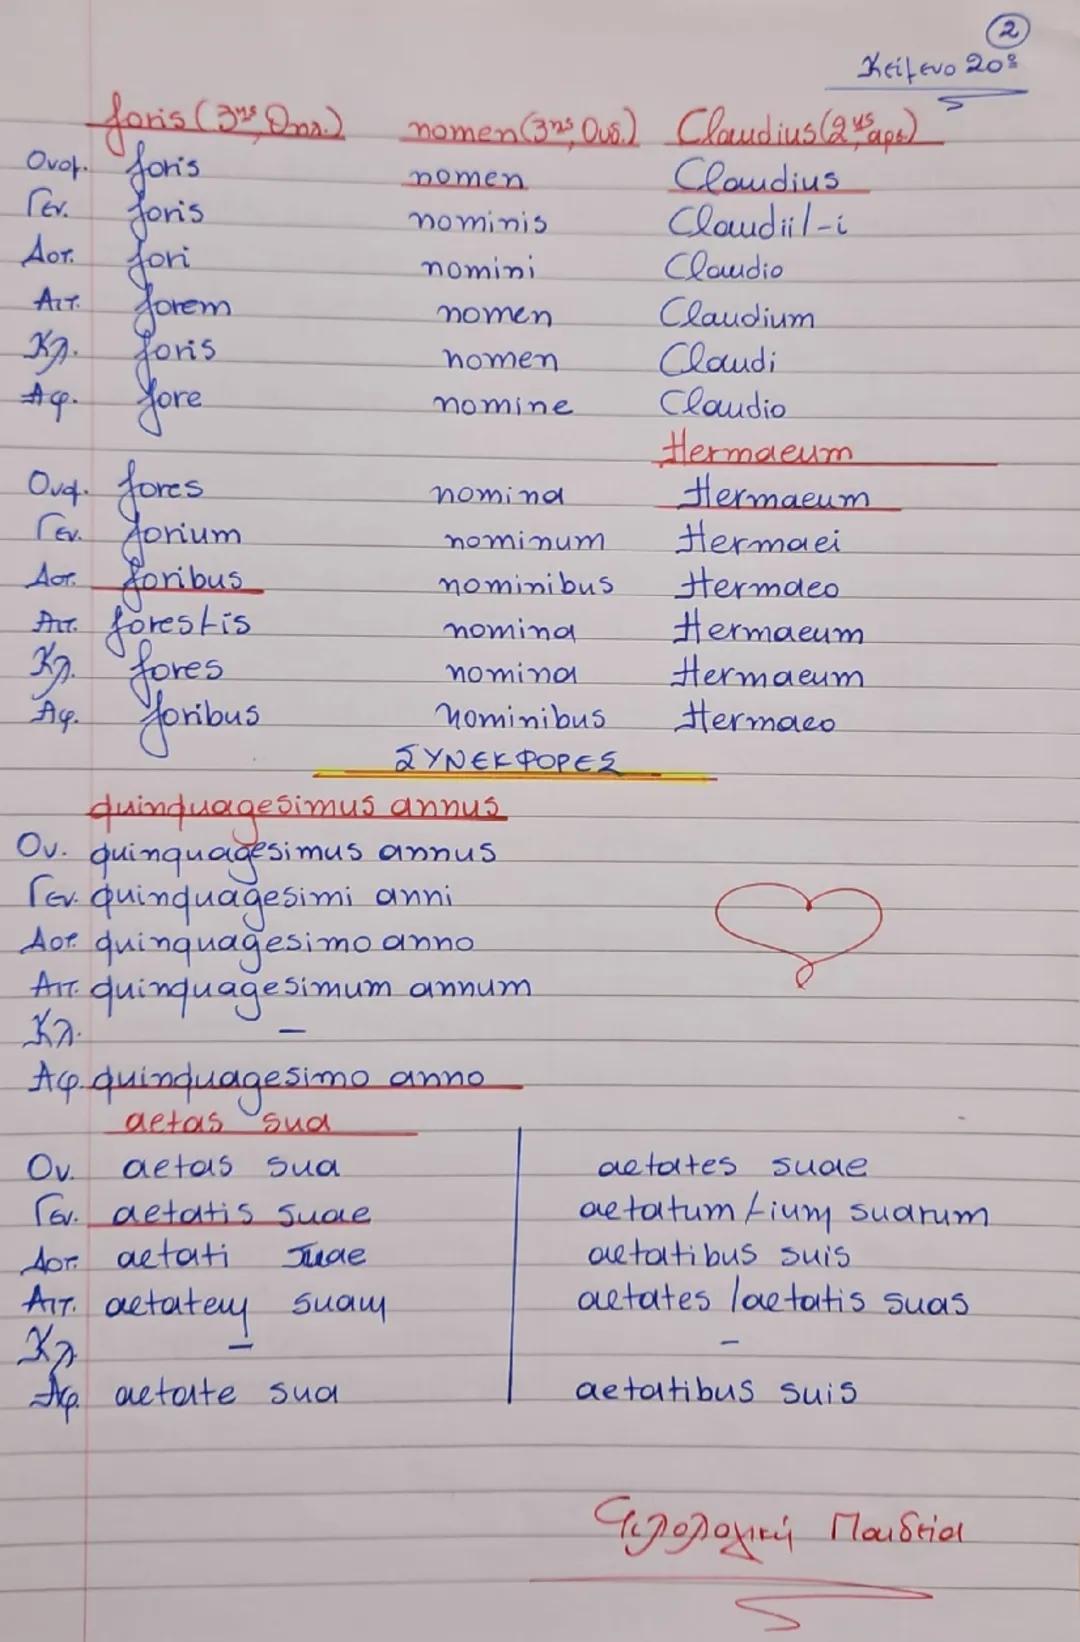 2
Κείμενο 20ο
foris (3ης, Θηλ.) nomen (3ης, Ουδ.) Claudius (2ης αρσ.)
Ονομ. foris nomen Claudius
Γεν. foris nominis Claudii/-i
Δοτ. fori nomini Claudio
Αιτ. forem nomen Claudium
Κλ. foris nomen Claudi
Αφ. fore nomine Claudio
Hermaeum
Ονομ. fores nomina Hermaeum
Γεν. forium nominum Hermaei
Δοτ. foribus nominibus Hermaeo
Αιτ. fores/-is nomina Hermaeum
Κλ. fores nomina Hermaeum
Αφ. foribus nominibus Hermaeo
ΣΥΝΕΚΦΟΡΕΣ
quinquagesimus annus
Ον. quinquagesimus annus
Γεν. quinquagesimi anni
Δοτ. quinquagesimo anno
Αιτ. quinquagesimum annum
Κλ. –
Αφ. quinquagesimo anno
aetas sua
Ον. aetas sua aetates suae
Γεν. aetatis suae aetatum/-ium suarum
Δοτ. aetati suae aetatibus suis
Αιτ. aetatem suam aetates/aetatis suas
Κλ – –
Αφ. aetate sua aetatibus suis
Φιλολογική Παιδεία